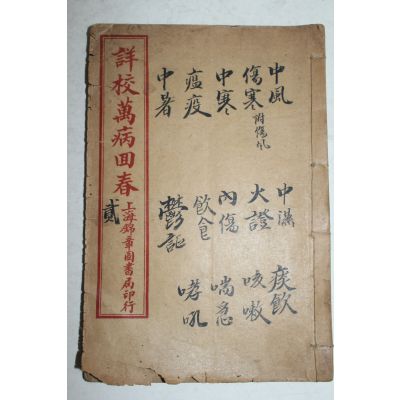 中風
傷寒附傷風
中寒
瘟疫
中暑
中濕
火證
內傷
飲食
鬱証
痰飲
咳嗽
喘急
哮吼
詳校萬病回春
貳
上海錦章圖書局印行